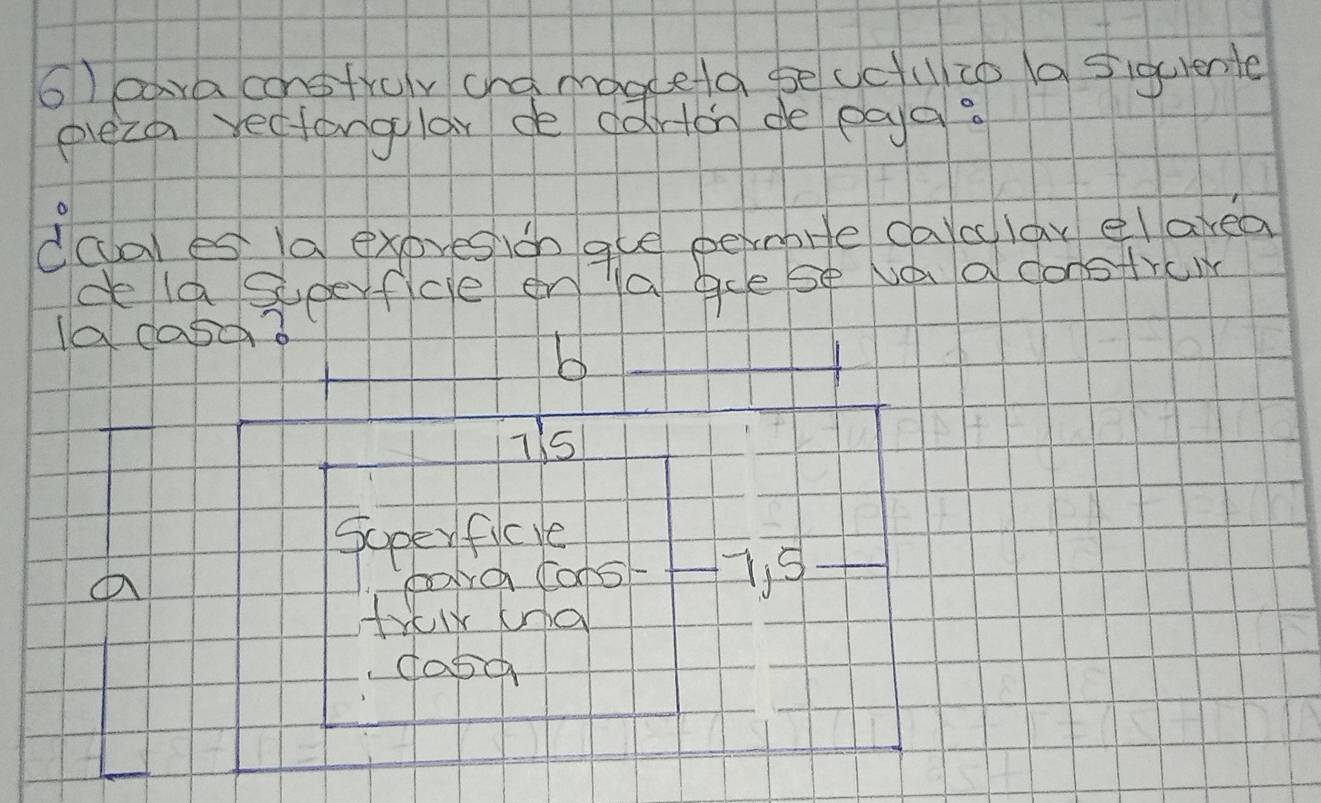 6) para construir una maqueta se uctilico la siguiente
pieza rectangular de cartón de paja:
¿cual es la expresión que permite calcular el aréa
de la superficie en la que se va a construir
la casa?
b
1,5
Superficie
para cons-
truir una
casa
1,5
a